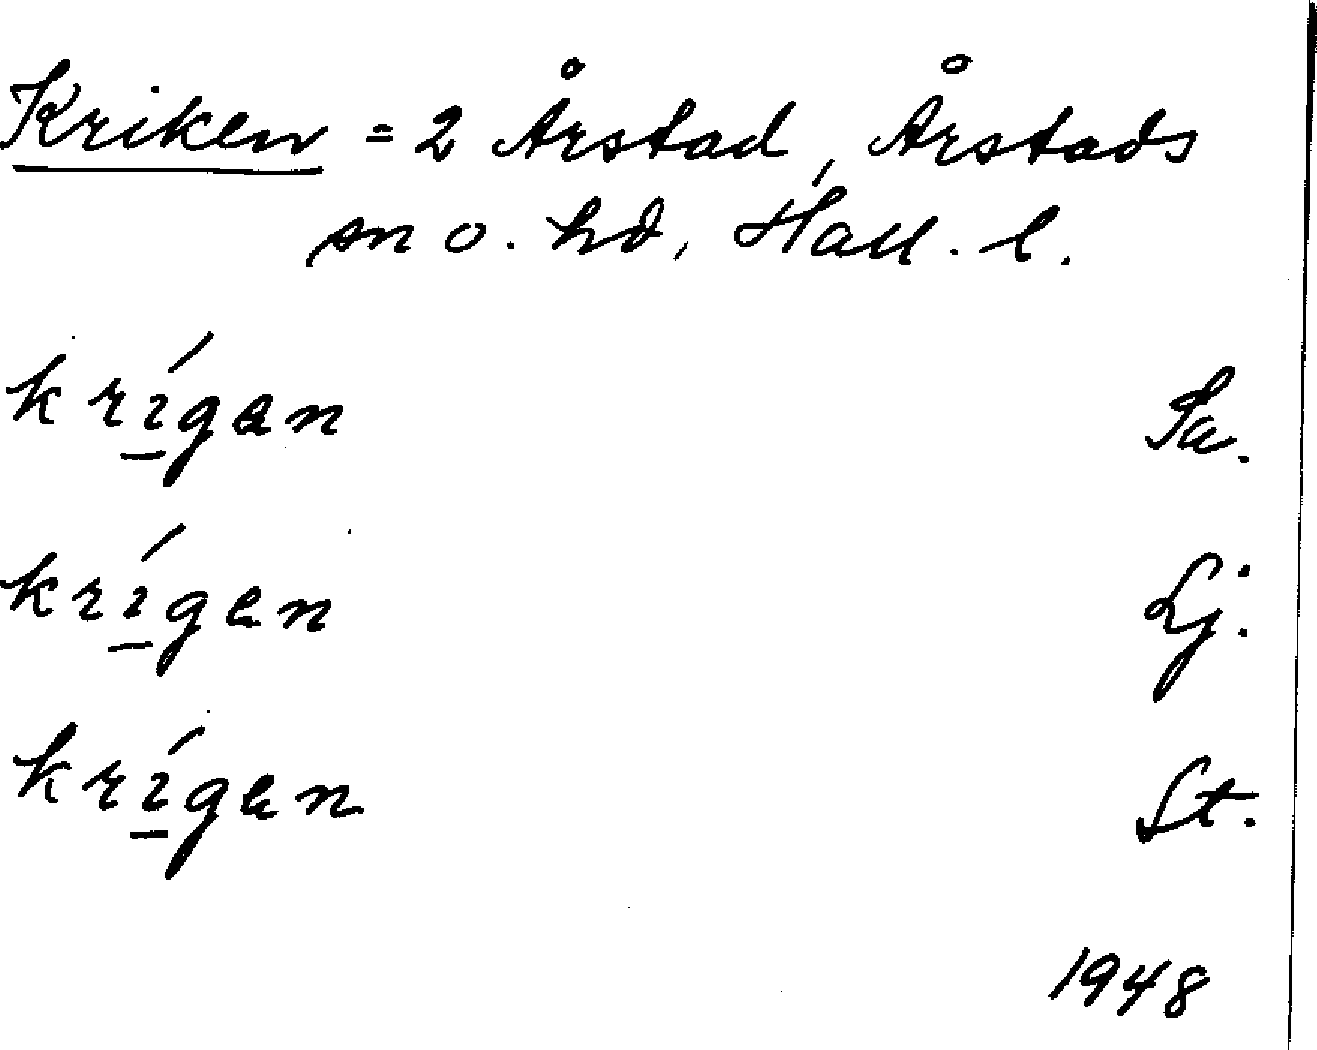 Kriken = 2 Årstad, Årstads
sn o. hd, Hall. l.
krígen Sa.
krígen Lj.
krígen St.
1948